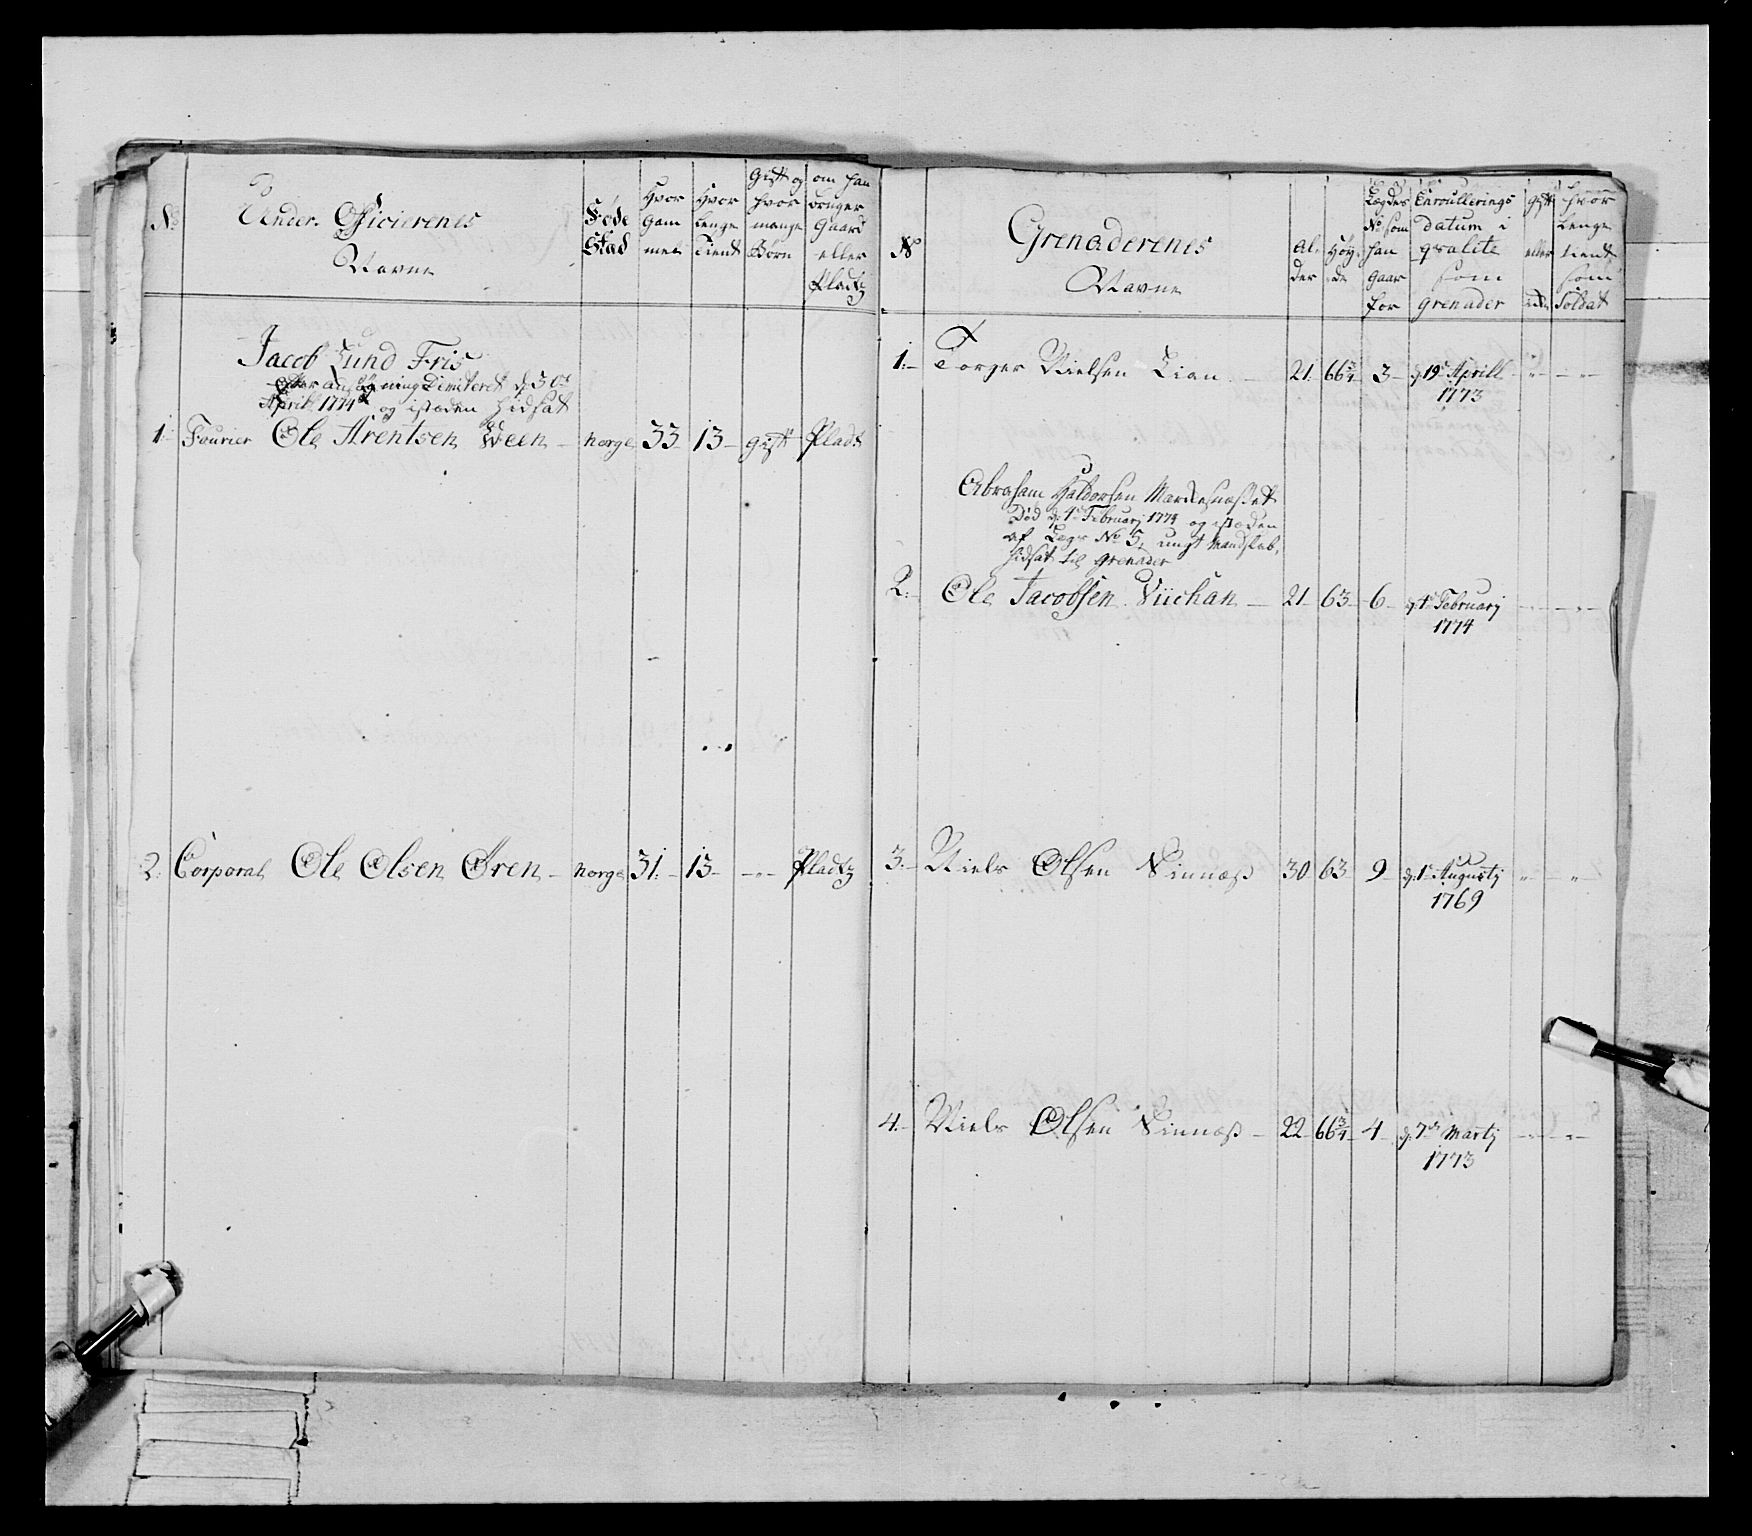 No
Under. Officierenes
Navne
Føde
Stad
Hvor
Gam
mel
Hvor
Lenge
Tient
Gift og
hvor
mange
Børn
om han
bruger
Gaard
eller
Pladtz
Jacob Lund Fris
efter ansøgning Dimiteret d: 30te
April 1774 og isteden hidsat
1. Fourier Ole Arentsen Ween - Norge 33 13 - gift Pladt
2. Corporal Ole Olsen Øren - Norge 31. - 13 - - " - Pladtz
No
Grenaderenes
Navne
Al-
der
Høy-
de
Lægdes
No som
han
gaar
for
Enroullerings
datum i
qvalite
som
grenader
gift
eller
hvor
Lenge
tient
som
Soldat
1. - Torger Nielsen Lian - 21. 66 3/4 3 - d: 19de Aprill - " - - " -
1773
Abraham Haldorsen
Død d: 1te Februarj 1774 og isteden
af Lægd No 5, ungt Mandskab,
hidsat til grenader
2. - Ole Jacobsen Viichan - 21 63 - 6 - d: 1te Februarj - " - - " -
1774
3. - Niels Olsen Sinnæss 30 63 9 - d: 1te Augustj " - "
1769
4. - Niels Olsen Sinnæss - 22 66 3/4 4 - d: 7de Martj - " - - " -
1773